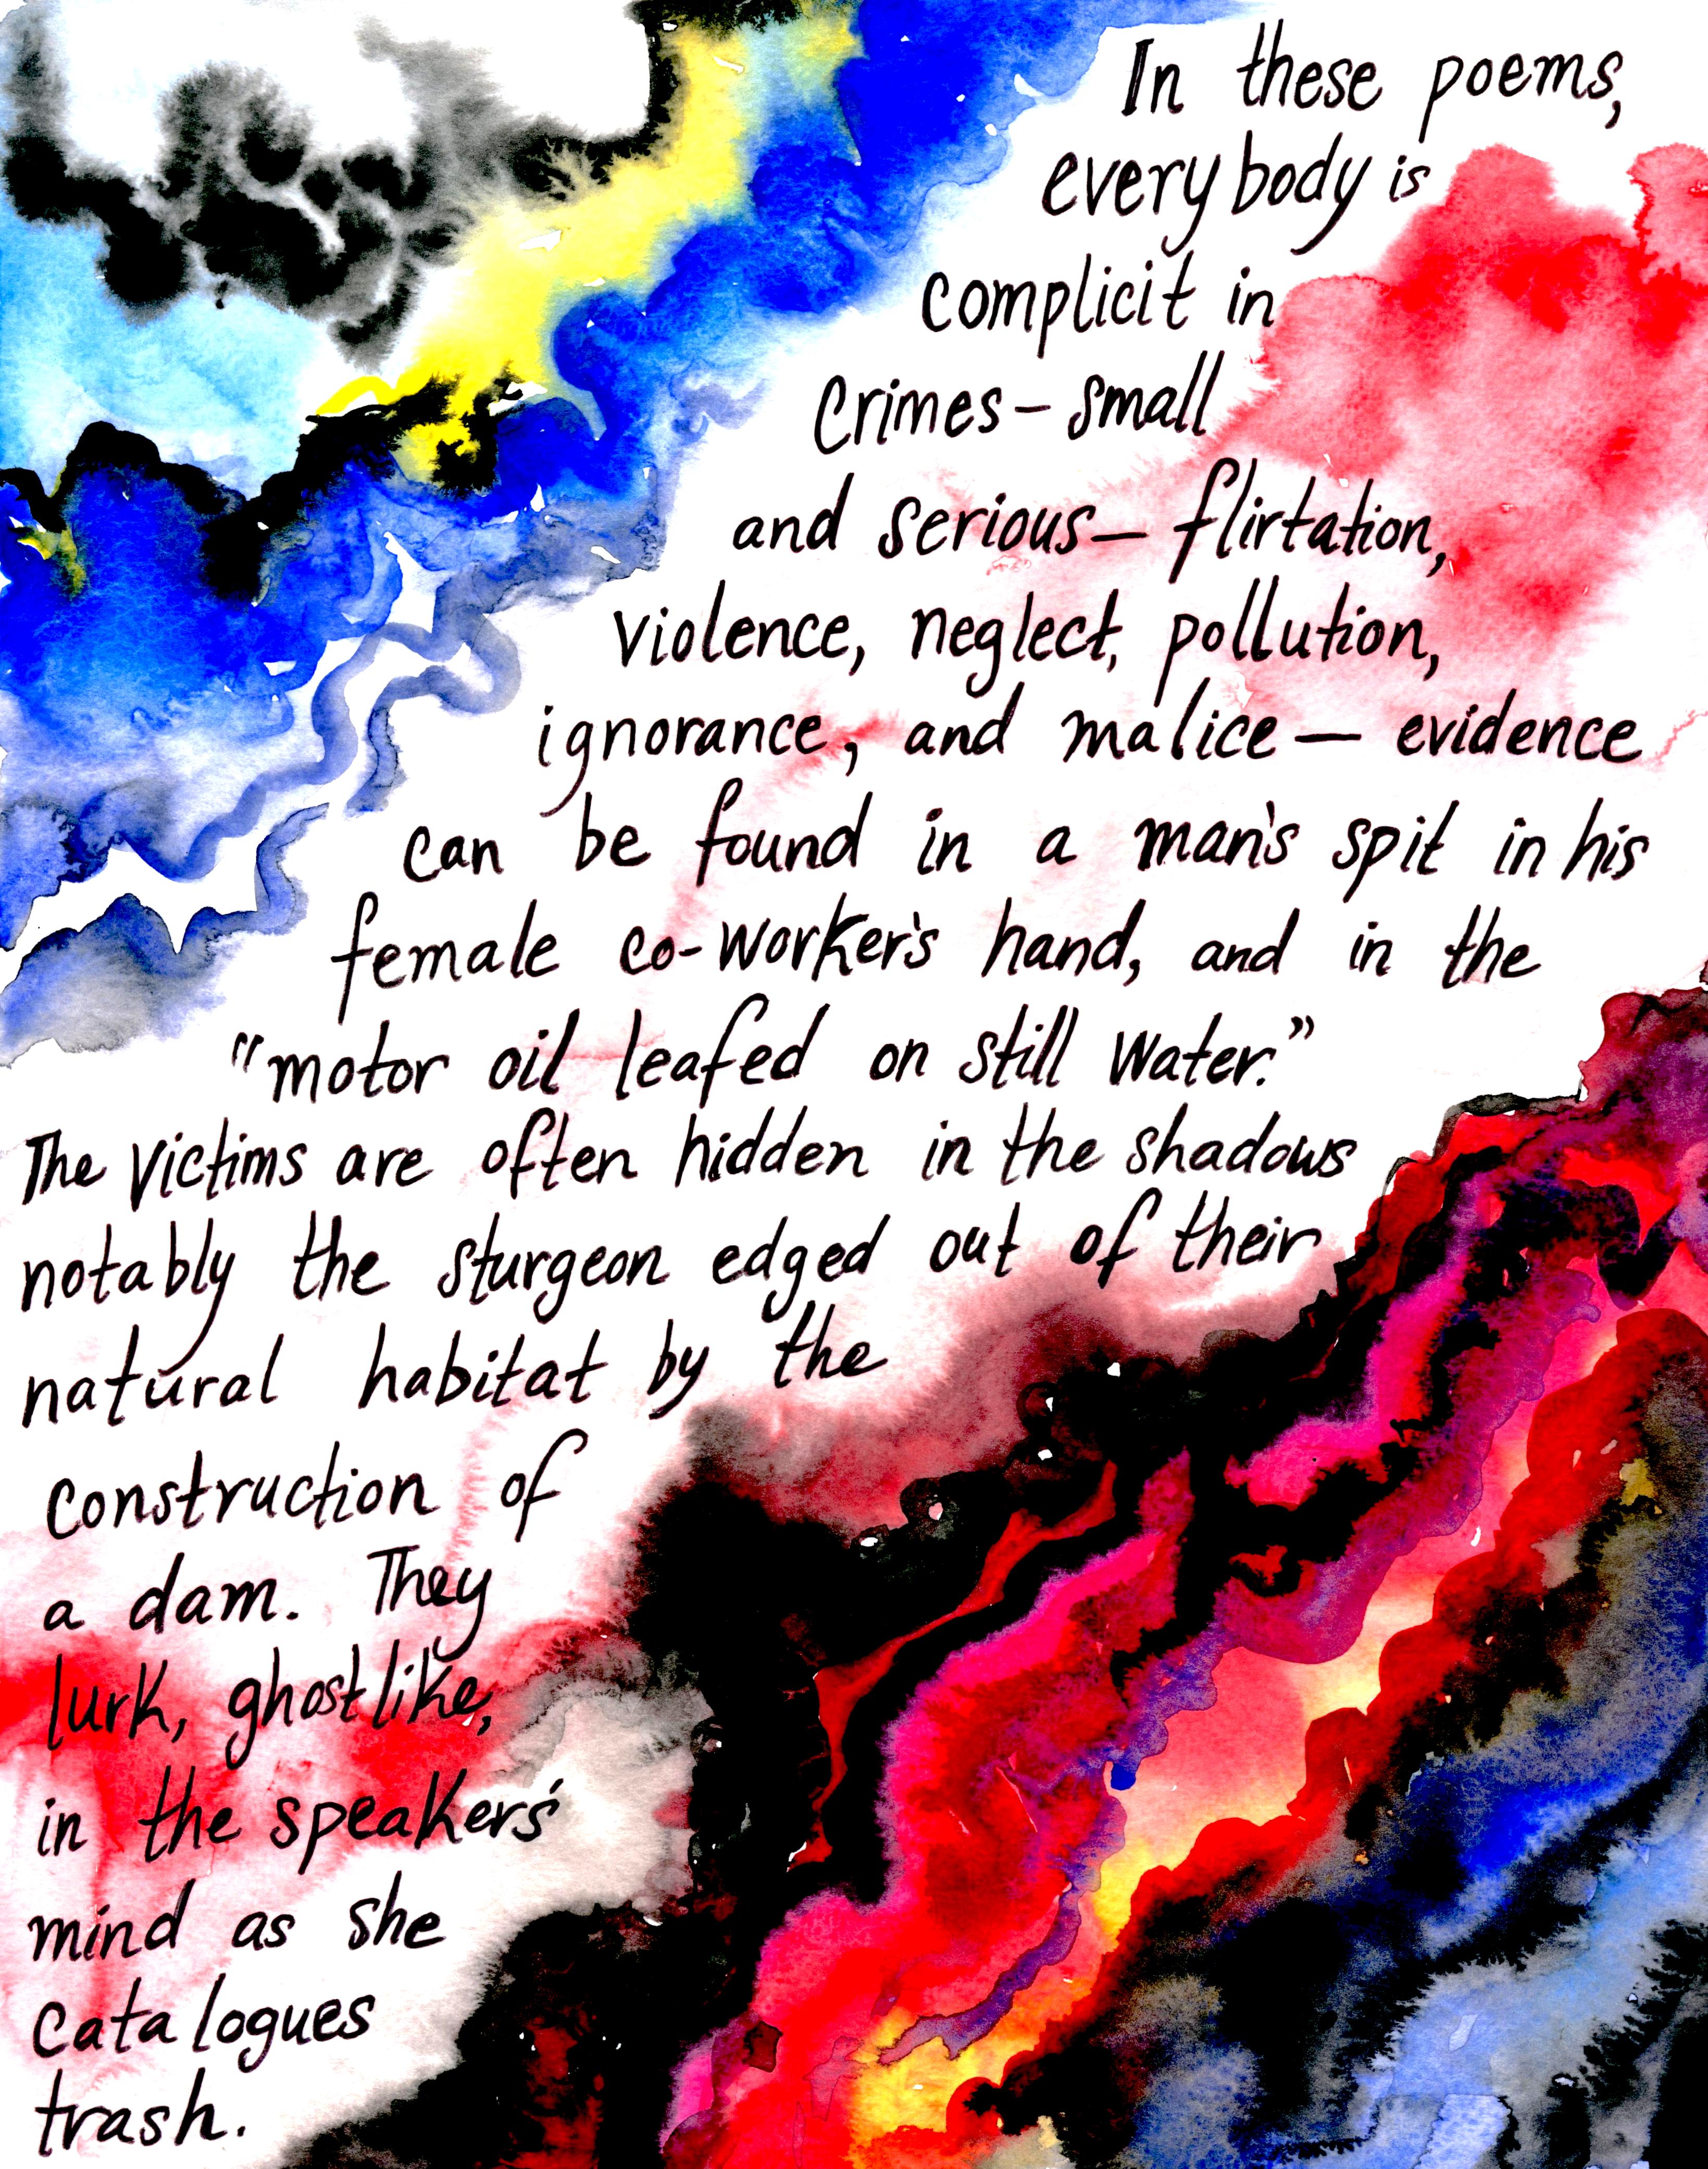 In these poems,
everybody is
complicit in
crimes – small
and serious – flirtation,
violence, neglect, pollution,
ignorance, and malice — evidence
can be found in a man's spit in his
female co-worker's hand, and in the
"motor oil leafed on still water."
The victims are often hidden in the shadows
notably the sturgeon edged out of their
natural habitat by the
construction of
a dam. They
lurk, ghostlike,
in the speakers'
mind as she
catalogues
trash.